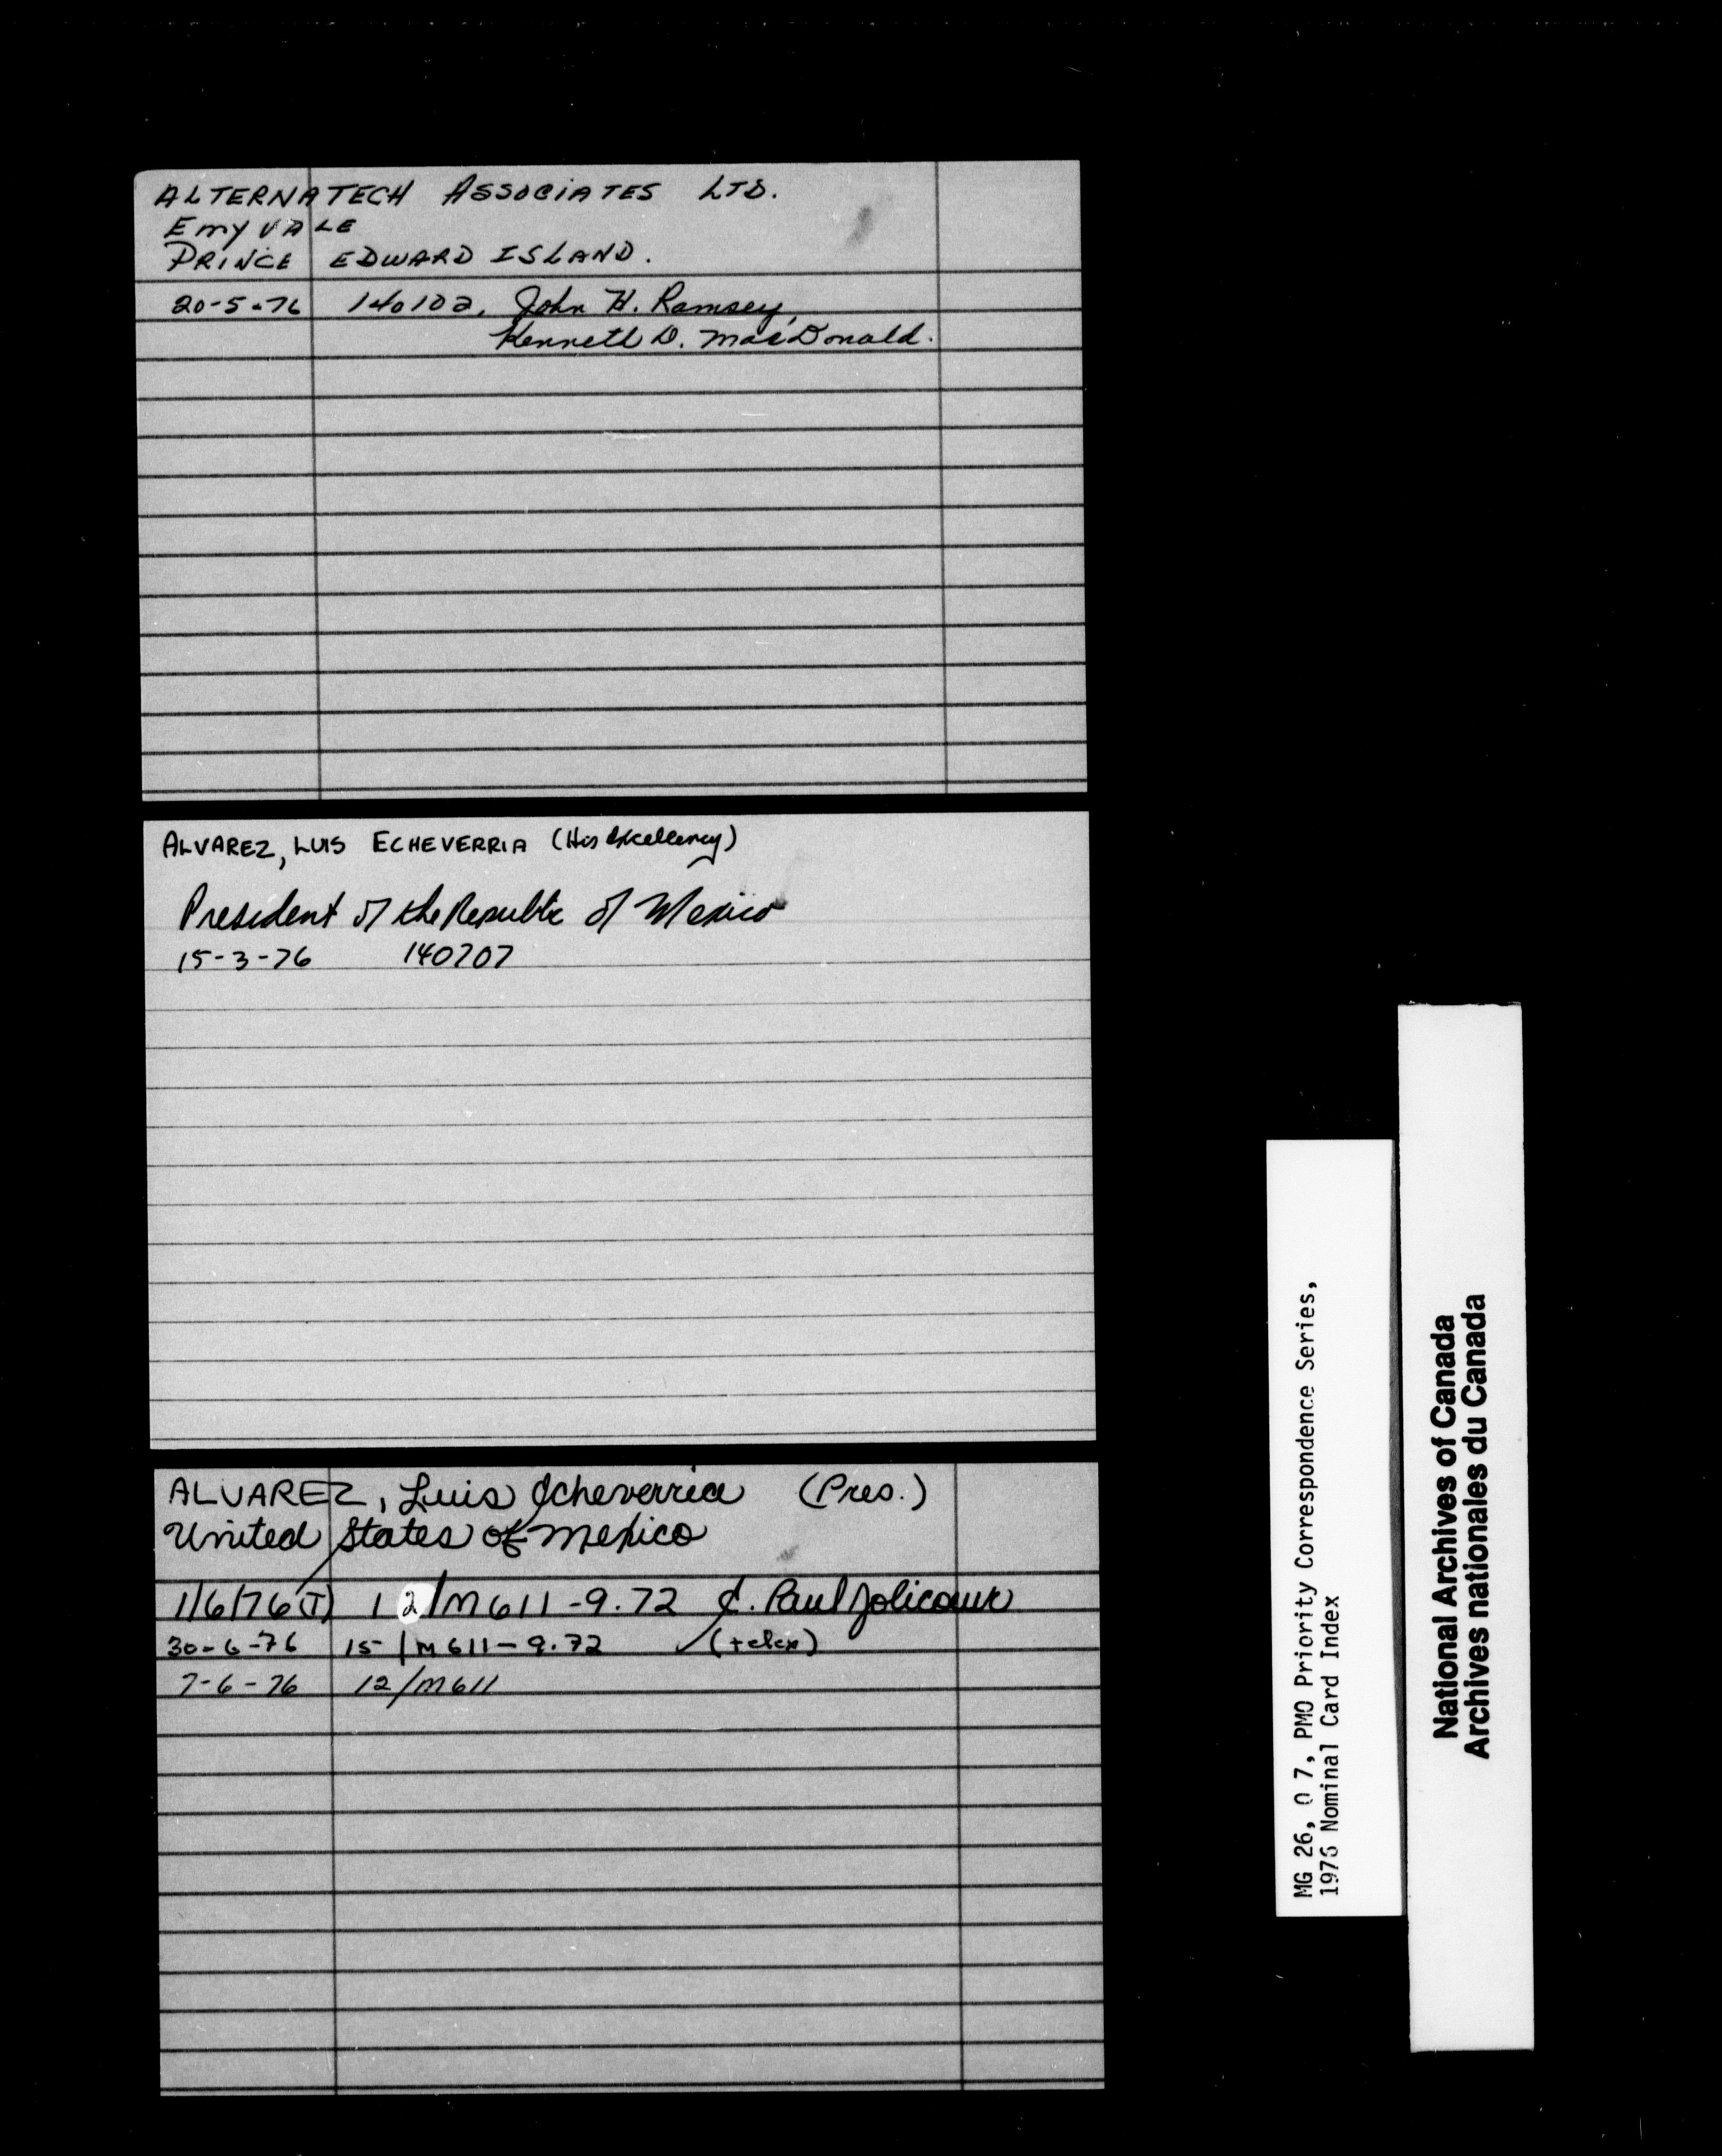 ALTERNATECH ASSOCIATES LTD.
EMYVALE
PRINCE EDWARD ISLAND.
20-5-76 140102, John H. Ramsey,
Kenneth D. MacDonald.
ALVAREZ, LUIS ECHEVERRIA (His Excellency)
President of the Republic of Mexico
15-3-76 140707
ALVAREZ, Luis Echeverria (Pres.)
United States of Mexico
1/6/76 (T) 12/M611-9.72 J. Paul Jolicoeur
30-6-76 15/M611-9.72 ✓(telex)
7-6-76 12/M611
MG 26, O 7, PMO Priority Correspondence Series,
1976 Nominal Card Index
National Archives of Canada
Archives nationales du Canada